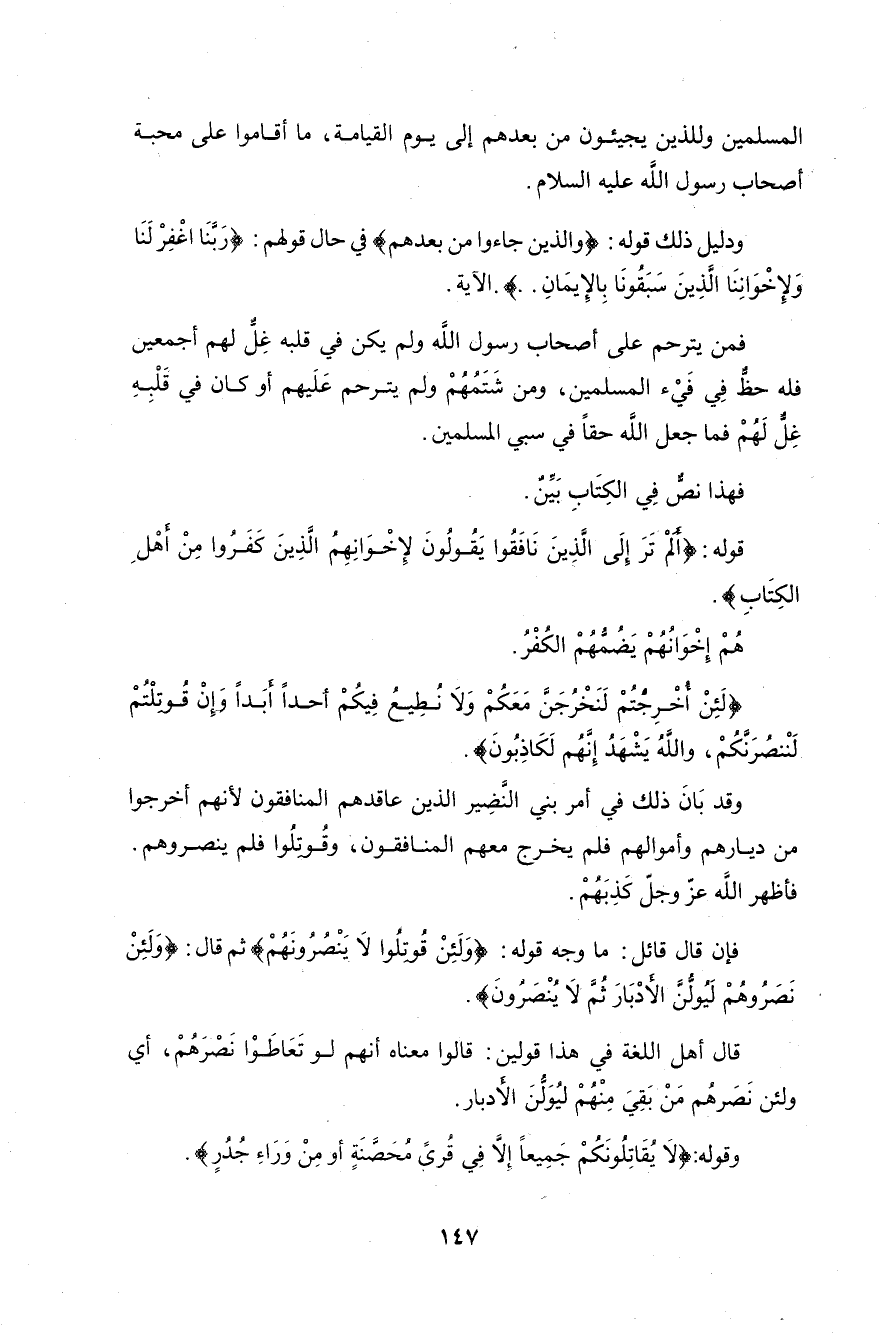 المسلمين وللذين يجيئـون من بعدهم إلى يـوم القيامـة، ما أقـاموا على محبـة
أصحاب رسول اللَّه عليه السلام.
ودليل ذلك قوله: ﴿والذين جاءوا من بعدهم﴾ في حال قولهم: ﴿رَبَّنَا اغْفِرْ لَنَا
وَلإِخْوَانِنَا الَّذِينَ سَبَقُونَا بِالإِيمَانِ. .﴾. الآية.
فمن يترحم على أصحاب رسول اللَّه ولم يكن في قلبه غِلٌّ لهم أجمعين
فله حظٌّ فِي فَيْء المسلمين، ومن شَتَمُهُمْ ولم يتـرحم عَلَيهم أو كـان في قَلْبِـهِ
غِلٌّ لَهُمْ فما جعل اللَّه حقاً في سبي المسلمين.
فهذا نصٌّ فِي الكِتَابِ بَيِّنٌ.
قوله: ﴿أَلَمْ تَرَ إِلَى الَّذِينَ نَافَقُوا يَقُـولُونَ لإِخْـوَانِهِمُ الَّذِينَ كَفَـرُوا مِنْ أَهْلِ
الكِتَابِ﴾.
هُمْ إِخْوَانُهُمْ يَضُمُّهُمْ الكُفْرُ.
﴿لَئِنْ أُخْـرِجْتُمْ لَنَخْرُجَنَّ مَعَكُمْ وَلَا نُـطِيـعُ فِيكُمْ أحـداً أَبَـداً وَإِنْ قُـوتِلْتُمْ
لَنْنصُرَنَّكُمْ، واللَّهُ يَشْهَدُ إِنَّهُم لَكَاذِبُونَ﴾.
وقد بَانَ ذلك في أمر بني النَّضِير الذين عاقدهم المنافقون لأنهم أخرجوا
من ديـارهم وأموالهم فلم يخـرج معهم المنـافقـون، وقُـوتِلُوا فلم ينصـروهم.
فأظهر اللَّه عزّ وجلّ كَذِبَهُمْ.
فإن قال قائل: ما وجه قوله: ﴿وَلَئِنْ قُوتِلُوا لَا يَنْصُرُونَهُمْ﴾ ثم قال: ﴿وَلَئِنْ
نَصَرُوهُمْ لَيُولُّنَّ الأَدْبَارَ ثُمَّ لَا يُنْصَرُونَ﴾.
قال أهل اللغة في هذا قولين: قالوا معناه أنهم لـو تَعَاطَـوْا نَصْرَهُمْ، أي
ولئن نَصَرهُم مَنْ بَقِيَ مِنْهُمْ لَيُوَلُّنَ الأدبار.
وقوله: ﴿لَا يُقَاتِلُونَكُمْ جَمِيعاً إِلَّا فِي قُرىً مُحَصَّنَةٍ أو مِنْ وَرَاءِ جُدُرٍ﴾.
١٤٧